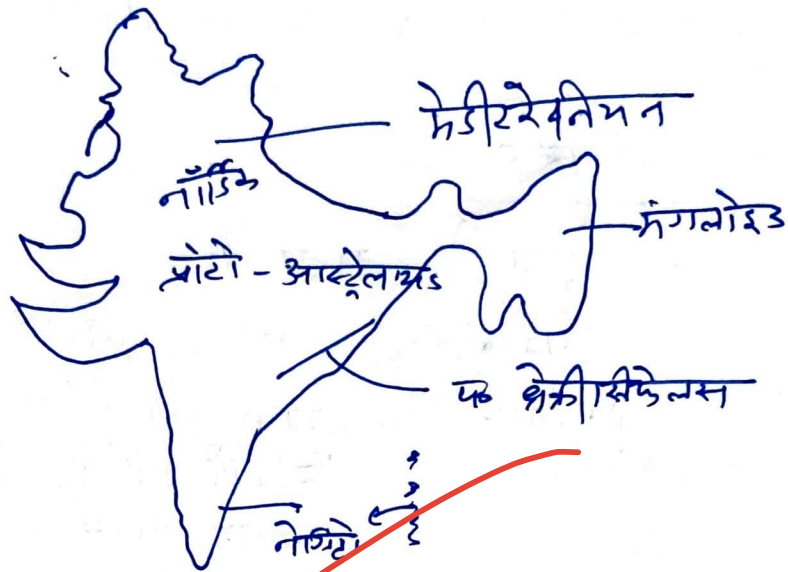 मेडीटरेनियन
नॉर्डिक
मंगलोइड
प्रोटो - आस्ट्रेलायड
प० ब्रेकीसिफेलस
नेग्रिटो